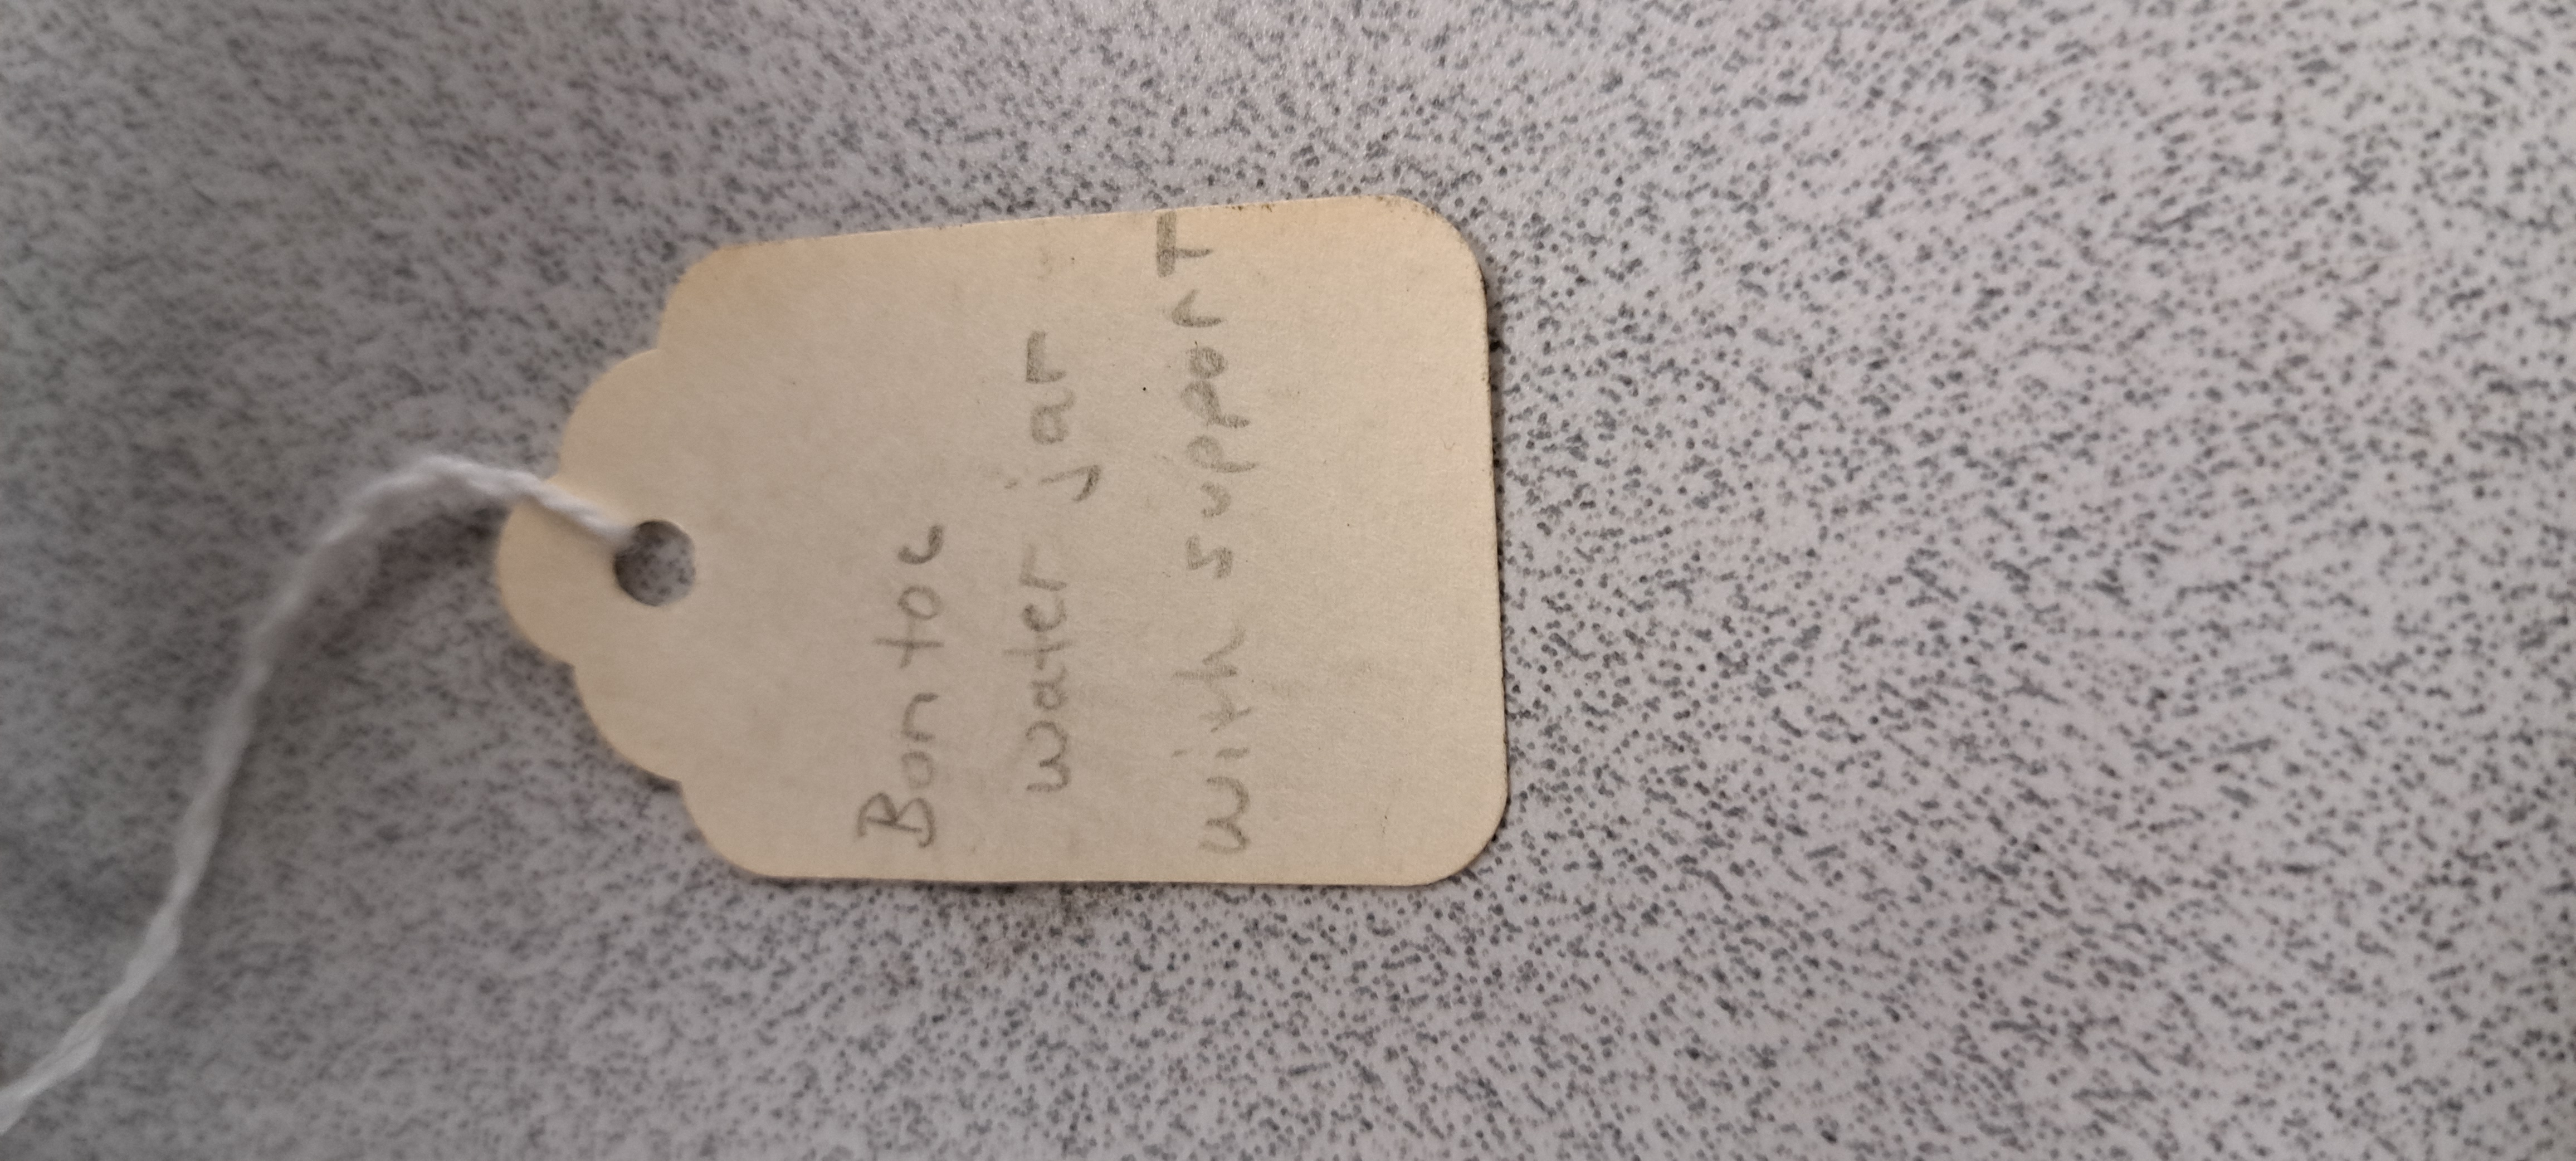 Bontoc
water jar
with support